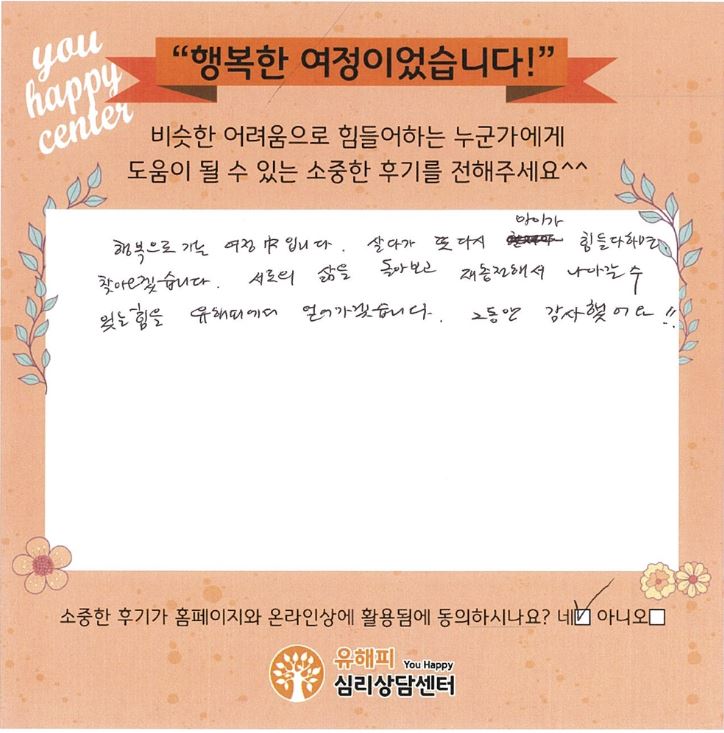 you
happy
center
“행복한 여정이었습니다!”
비슷한 어려움으로 힘들어하는 누군가에게
도움이 될 수 있는 소중한 후기를 전해주세요^^
행복으로 가는 여정 中입니다. 살다가 또 다시 맘이가 힘들다하면
찾아오겠습니다. 서로의 삶을 돌아보고 재충전해서 나아갈수
있는힘을 유해피에서 얻어가겠습니다. 그동안 감사했어요!!
소중한 후기가 홈페이지와 온라인상에 활용됨에 동의하시나요? 네☑ 아니오☐
유해피 You Happy
심리상담센터